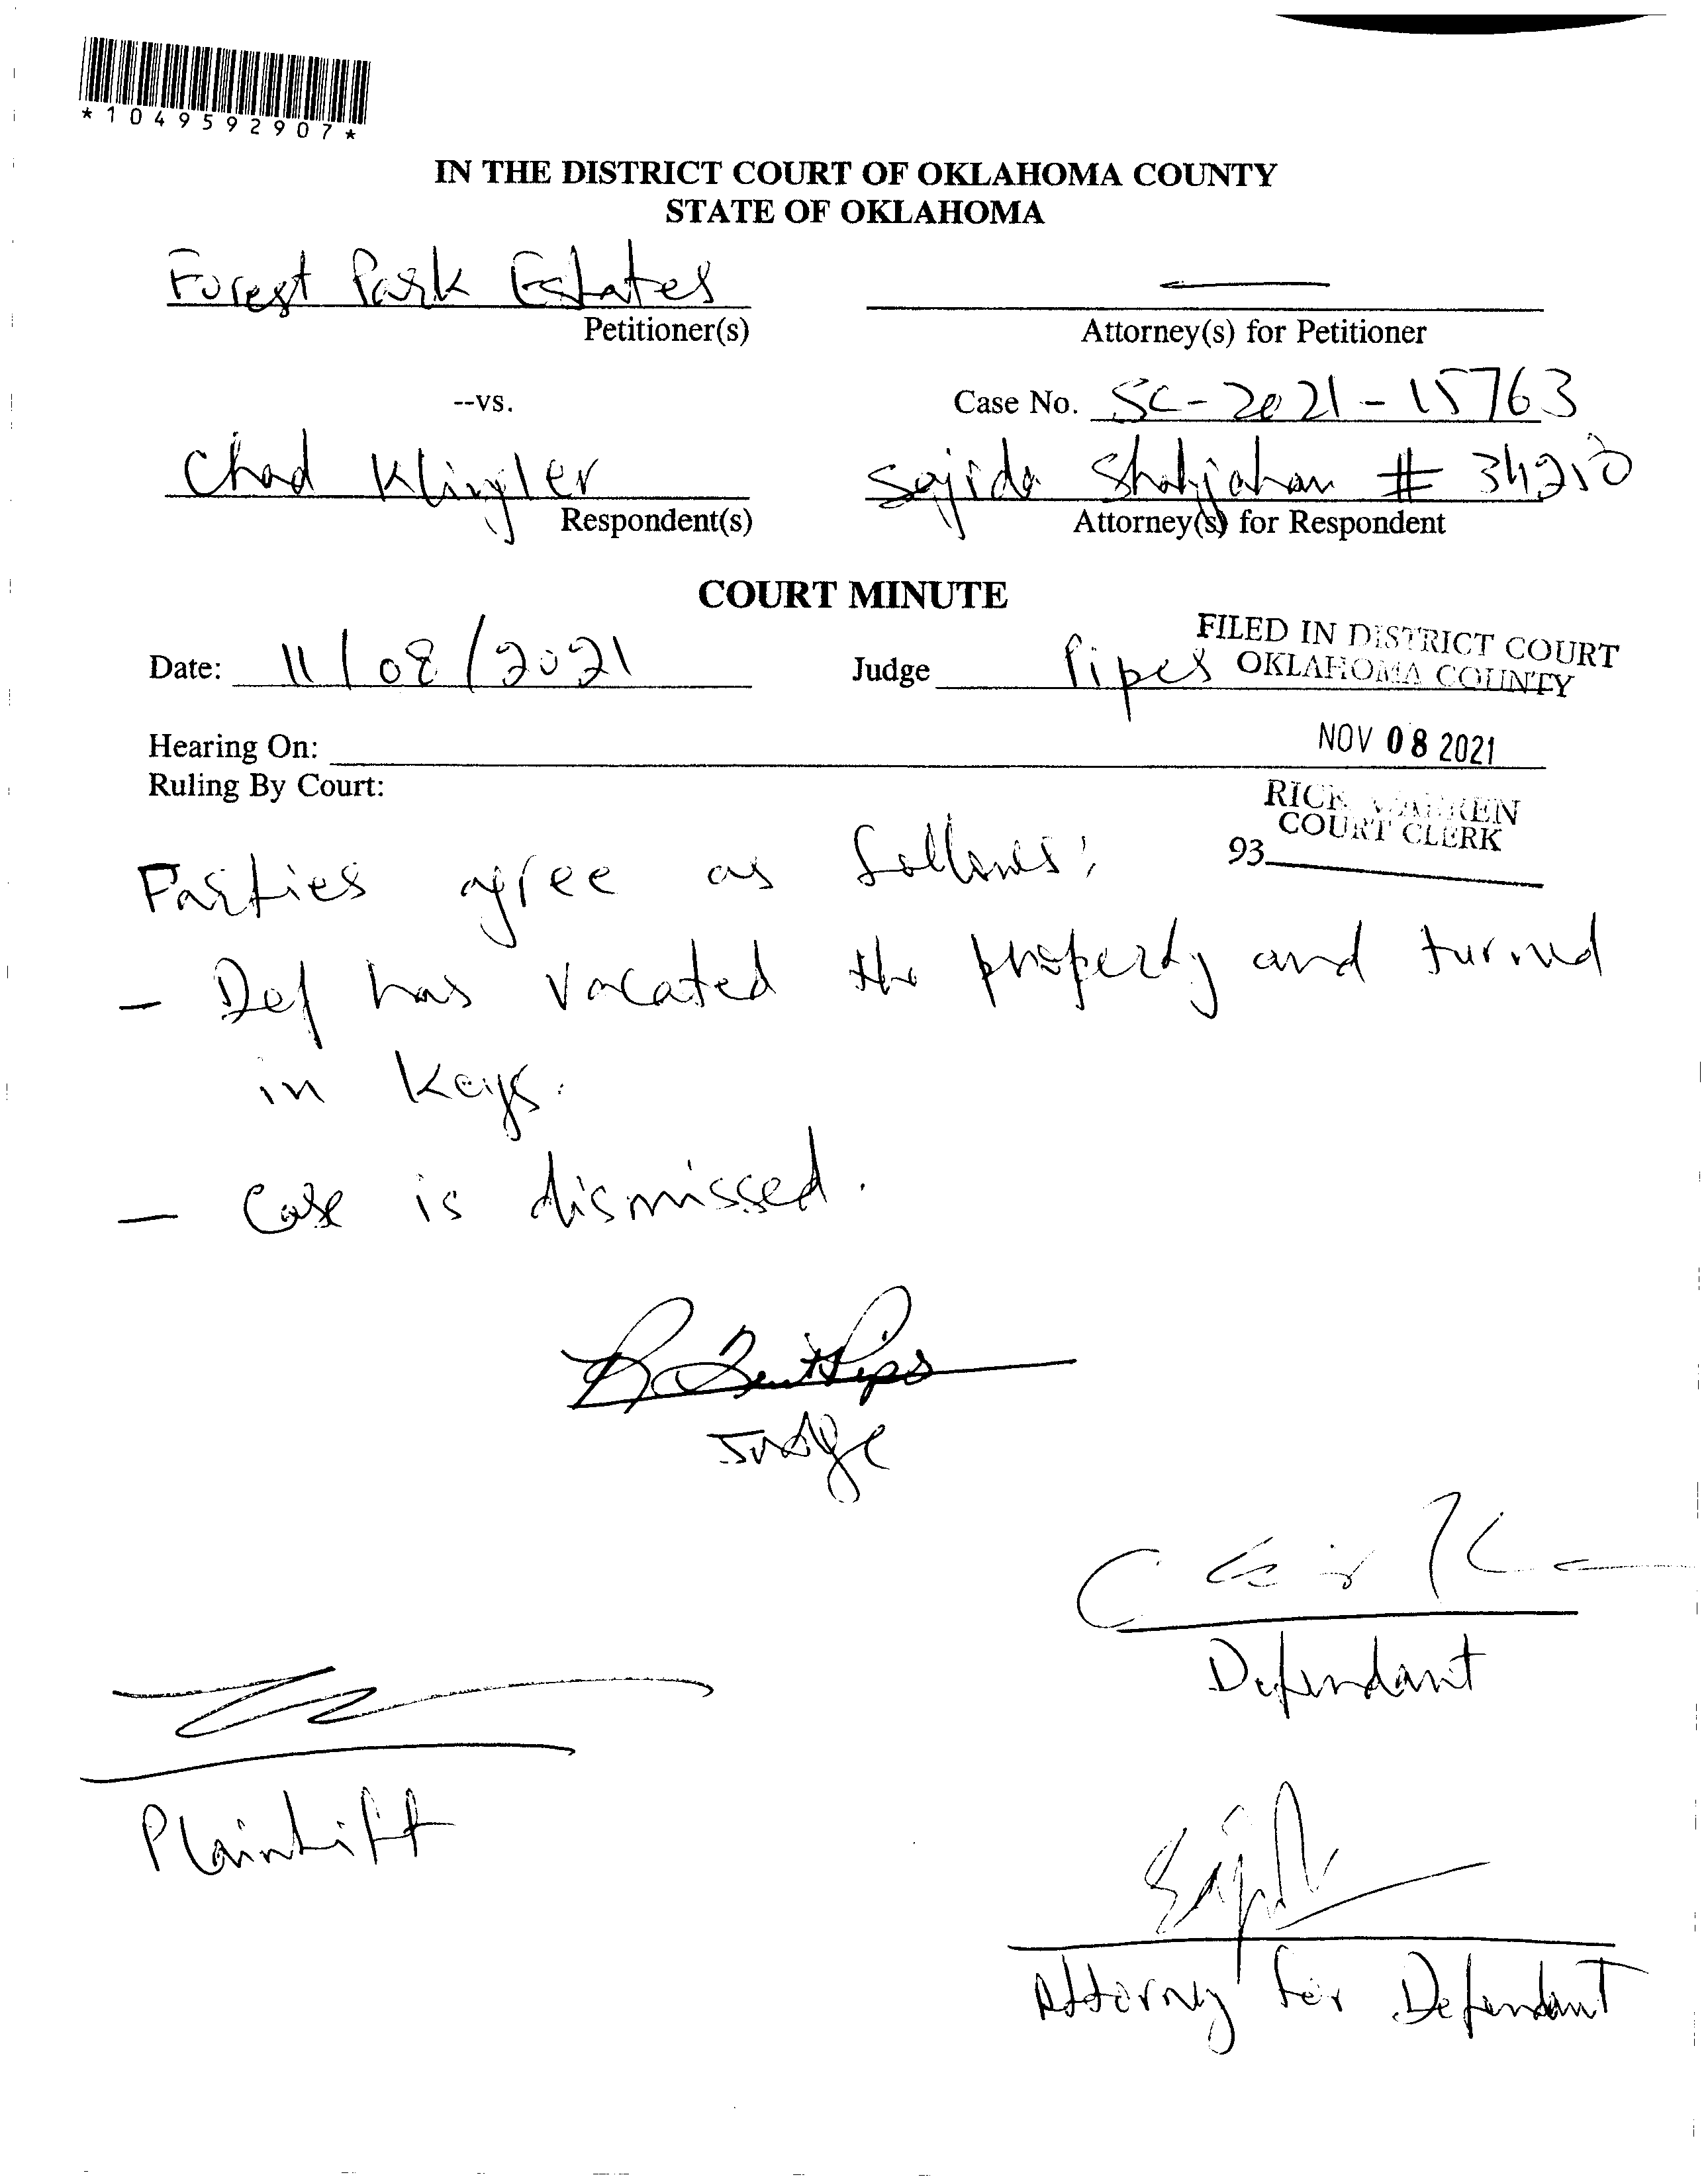 *1049592907*
IN THE DISTRICT COURT OF OKLAHOMA COUNTY
STATE OF OKLAHOMA
Forest Park Estates
Petitioner(s)
Attorney(s) for Petitioner
--vs.
Case No. SC-2021-15763
Chad Klingler
Respondent(s)
Sajida Shahjahan # 34210
Attorney(s) for Respondent
COURT MINUTE
Date: 11/08/2021
Judge Pipes
FILED IN DISTRICT COURT
OKLAHOMA COUNTY
NOV 08 2021
Hearing On:
Ruling By Court:
RICK WARREN
COURT CLERK
93
Parties agree as follows:
- Def has vacated the property and turned
in keys.
- Case is dismissed.
Judge
Defendant
Plaintiff
Attorney for Defendant